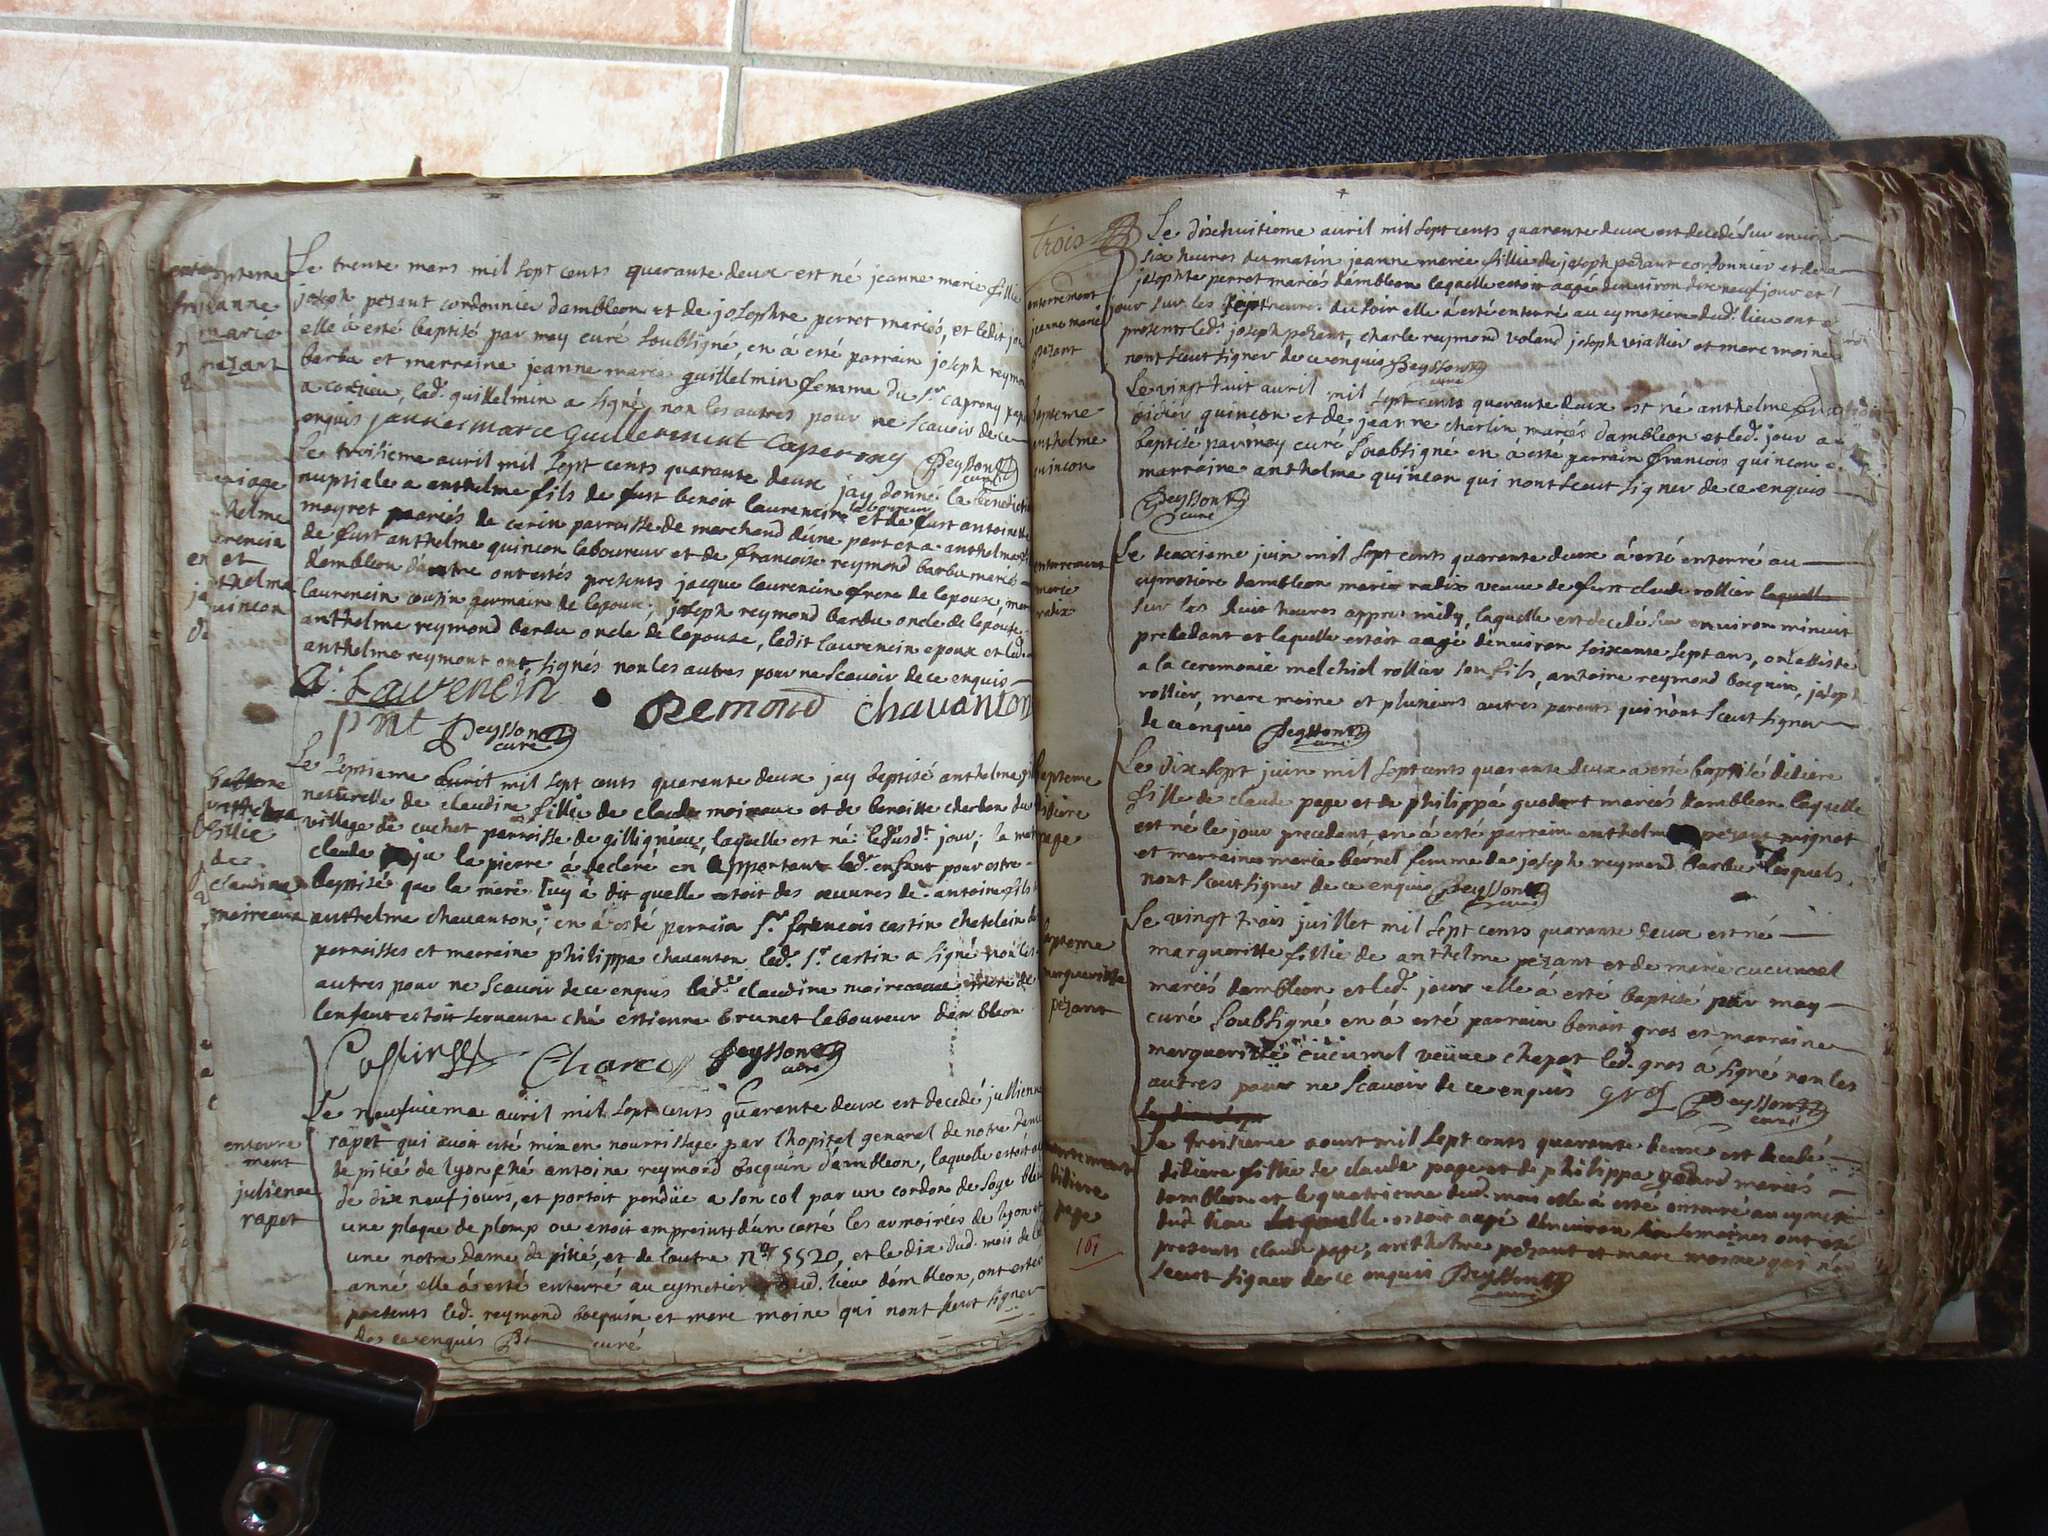 bapteme
jeanne
marie
pezant
Le trente mars mil sept cents quarante deux est né jeanne marie fillie
joseph pezant cordonnier dambleon et de josephte perret mariés, et ledit jou
elle à esté baptisé par moy curé soubsigné, en à esté parrain joseph reymon
barbu et marraine jeanne marie guillelmin femme du Sr. caprony
a cordieu, led. guillelmin a signé, non les autres pour ne scavoir de ce
enquis janne marie Guillerminet Caperony Peysson
curé
mariage
thelme
rencin
et
thelma
quincon
Le troisieme avril mil sept cents quarante deux jay donné la benedictio
nuptiale a anthelme fils de fust benoit laurencin laboureur et de fust antoinette
mayret mariés de cerin parroisse de marchand dune part et a anthelma
de fust anthelme quincon laboureur et de francoise reymond barbu mariés
dambleon dautre ont estés presents jacque laurencin frere de lepoux, marc
laurencin cousin germain de lepoux, joseph reymond barbu oncle de lepouse,
anthelme reymond barbu oncle de lepouse, ledit laurencin epoux et led.
anthelme reymont ont signés non les autres pour ne scavoir de ce enquis
A. Laurencin Remond Chavanton
pnt Peysson
curé
fillie
de
claudine
moireaux
Le septieme avril mil sept cents quarante deux jay baptisé anthelme
naturelle de claudine fillie de claude moireaux et de benoitte charbon du
village de cuchet parroisse de gillignieu, laquelle est né ledusdt jour, la
claude la pierre à declaré en apportant led. enfant pour estre
baptisé que la mere luy à dit quelle estoit des œuvres de antoine fils
anthelme chavanton; en à esté parrain Sr. francois castin chatelain de
parroisses et marraine philippa chavanton led. Sr. castin a signé non les
autres pour ne scavoir de ce enquis lade. claudine moireaux mere de
lenfant estoit servante ché estienne brunet laboureur dambleon
Peysson
curé
enterre
ment
julienne
rapet
Le neufvieme avril mil sept cents quarante deux est decedé jullienne
rapet qui avoit esté mixe en nourrissage par lhopital general de notre dame
de pitié de lyon ché antoine reymond bocquin dambleon, laquelle estoit
de dix neuf jours, et portoit pendüe a son col par un cordon de soye bleu
une plaque de plomp ou estoit empreint dun costé les armoiries de lyon et
une notre dame de pitié, et de lautre no. 5520, et le dix dud. mois de lad
anné elle à esté enterré au cymetiere dud. lieu dambleon, ont estés
presents led. reymond bocquin et marc moine qui nont sceut signer
de ce enquis curé
trois
enterrement
jeanne marie
pezant
Le dixhuitieme avril mil sept cents quarante deux est decedé sur environ
six heures du matin jeanne marie fillie de joseph pezant cordonnier et de
josephte perret mariés dambleon laquelle estoit aagé denviron dix neuf jour et
jour sur les sept heures du soir elle à esté enterré au cymetiere dud. lieu ont
presents led. joseph pezant, charle reymond voland joseph viallier et marc moine
nont sceut signer de ce enquis Peysson
curé
bapteme
anthelme
quincon
Le vingt huit avril mil sept cents quarante deux est né anthelme
didier quincon et de jeanne charlin mariés dambleon et led. jour a
baptisé par moy curé soubsigné en à esté parrain francois quincon
marraine anthelme quincon qui nont sceut signer de ce enquis
Peysson
curé
enterrement
marie
radix
Le deuxieme juin mil sept cents quarante deux à esté enterré au
cymetiere dambleon marie radix veuve de fust claude rollier
sur les huit heures apprés midy, laquelle est decedé sur environ minuit
precedant et laquelle estoit aagé denviron soixante sept ans, ont assisté
a la ceremonie melchiol rollier son fils, antoine reymond bocquin, joseph
rollier, marc moine et plusieurs autres parents qui nont sceut signer
de ce enquis Peysson
curé
bapteme
didiere
page
Le dix sept juin mil sept cents quarante deux a esté baptisé didiere
fille de claude page et de philippa godart mariés dambleon laquelle
est né le jour precedant en à esté parrain anthelme pezant poignet
et marraine marie bernel femme de joseph reymond barbu lesquels
nont sceut signer de ce enquis Peysson
curé
bapteme
margueritte
pezant
Le vingt trois juillet mil sept cents quarante deux est né
margueritte fillie de anthelme pezant et de marie cucumel
mariés dambleon et led. jour elle à esté baptisé par moy
curé soubsigné en à esté parrain benoit gros et marraine
margueritte cucumel veuve chapot led. gros à signé non les
autres pour ne scavoir de ce enquis gros Peysson
curé
enterrement
didiere
page
161
Le troisieme aoust mil sept cents quarante deux est decedé
didiere fillie de claude page et de philippa godard mariés
dambleon et le quatrieme dud. mois elle à esté enterré au cymeti
dud. lieu laquelle estoit aagé denviron six semaines ont esté
presents claude page, anthelme pezant et marc moine qui nont
sceut signer de ce enquis Peysson
curé